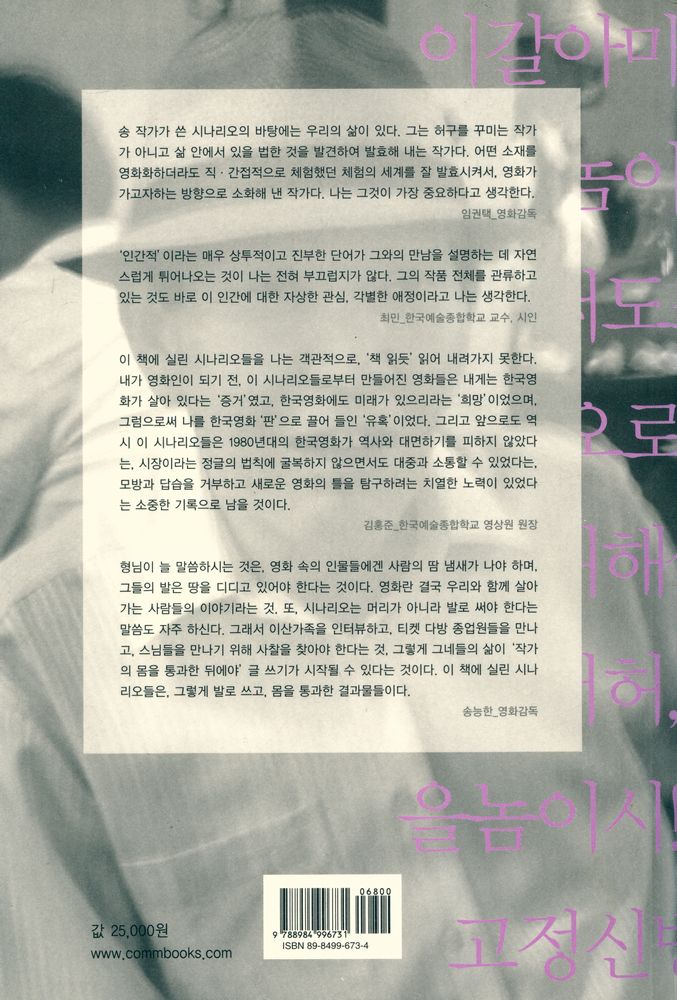 이갈아미
놈이
도
으로
해
허,
을놈이시
고정신
송 작가가 쓴 시나리오의 바탕에는 우리의 삶이 있다. 그는 허구를 꾸미는 작가
가 아니고 삶 안에서 있을 법한 것을 발견하여 발효해 내는 작가다. 어떤 소재를
영화화하더라도 직·간접적으로 체험했던 체험의 세계를 잘 발효시켜서, 영화가
가고자하는 방향으로 소화해 낸 작가다. 나는 그것이 가장 중요하다고 생각한다.
임권택_영화감독
'인간적'이라는 매우 상투적이고 진부한 단어가 그와의 만남을 설명하는 데 자연
스럽게 튀어나오는 것이 나는 전혀 부끄럽지가 않다. 그의 작품 전체를 관류하고
있는 것도 바로 이 인간에 대한 자상한 관심, 각별한 애정이라고 나는 생각한다.
최민_한국예술종합학교 교수, 시인
이 책에 실린 시나리오들을 나는 객관적으로, '책 읽듯' 읽어 내려가지 못한다.
내가 영화인이 되기 전, 이 시나리오들로부터 만들어진 영화들은 내게는 한국영
화가 살아 있다는 '증거'였고, 한국영화에도 미래가 있으리라는 '희망'이었으며,
그럼으로써 나를 한국영화 '판'으로 끌어 들인 '유혹'이었다. 그리고 앞으로도 역
시 이 시나리오들은 1980년대의 한국영화가 역사와 대면하기를 피하지 않았다
는, 시장이라는 정글의 법칙에 굴복하지 않으면서도 대중과 소통할 수 있었다는,
모방과 답습을 거부하고 새로운 영화의 틀을 탐구하려는 치열한 노력이 있었다
는 소중한 기록으로 남을 것이다.
김홍준_한국예술종합학교 영상원 원장
형님이 늘 말씀하시는 것은, 영화 속의 인물들에겐 사람의 땀 냄새가 나야 하며,
그들의 발은 땅을 디디고 있어야 한다는 것이다. 영화란 결국 우리와 함께 살아
가는 사람들의 이야기라는 것. 또, 시나리오는 머리가 아니라 발로 써야 한다는
말씀도 자주 하신다. 그래서 이산가족을 인터뷰하고, 티켓 다방 종업원들을 만나
고, 스님들을 만나기 위해 사찰을 찾아야 한다는 것, 그렇게 그네들의 삶이 '작가
의 몸을 통과한 뒤에야' 글 쓰기가 시작될 수 있다는 것이다. 이 책에 실린 시나
리오들은, 그렇게 발로 쓰고, 몸을 통과한 결과물들이다.
송능한_영화감독
값 25,000원
www.commbooks.com
06800
9 788984 996731
ISBN 89-8499-673-4